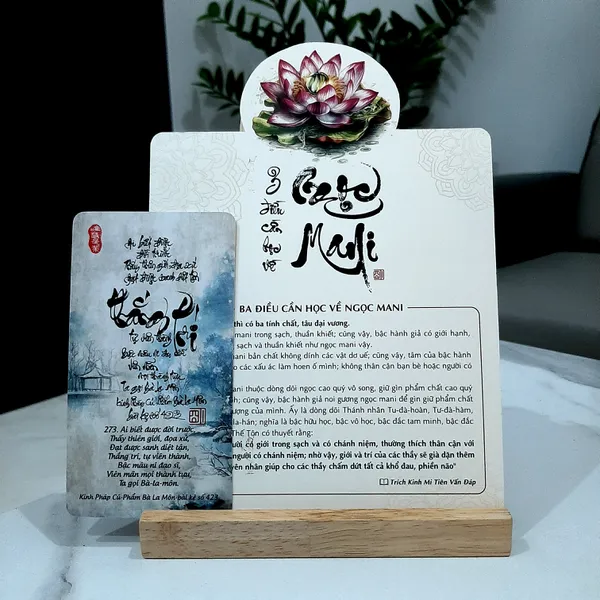 3
điều
cần
học
về
Ngọc
Mani
BA ĐIỀU CẦN HỌC VỀ NGỌC MANI
thì có ba tính chất, tâu đại vương.
mani trong sạch, thuần khiết; cũng vậy, bậc hành giả có giới hạnh,
sạch và thuần khiết như ngọc mani vậy.
mani bản chất không dính các vật dơ uế; cũng vậy, tâm của bậc hành
ao các xấu ác làm hoen ố mình; không thân cận bạn bè hoặc người có
mani thuộc dòng dõi ngọc cao quý vô song, giữ gìn phẩm chất cao quý
; cũng vậy, bậc hành giả noi gương ngọc mani để gìn giữ phẩm chất
ượng của mình. Ấy là dòng dõi Thánh nhân Tu-đà-hoàn, Tư-đà-hàm,
la-hán; nghĩa là bậc hữu học, bậc vô học, bậc đắc tam minh, bậc đắc
Thế Tôn có thuyết rằng:
ười có giới trong sạch và có chánh niệm, thường thích thân cận với
có chánh niệm; nhờ vậy, giới và trí của các thầy sẽ già dặn thêm
yên nhân giúp cho các thầy chấm dứt tất cả khổ đau, phiền não"
Trích Kinh Mi Tiên Vấn Đáp
Ai biết được
đời trước
thắng tri
273. Ai biết được đời trước,
Thấy thiên giới, đọa xứ,
Đạt được sanh diệt tận,
Thắng trí, tự viên thành,
Bậc mâu ni đạo sĩ,
Viên mãn mọi thành tựu,
Ta gọi Bà-la-môn.
Kinh Pháp Cú Phẩm Bà La Môn bài kệ số 423